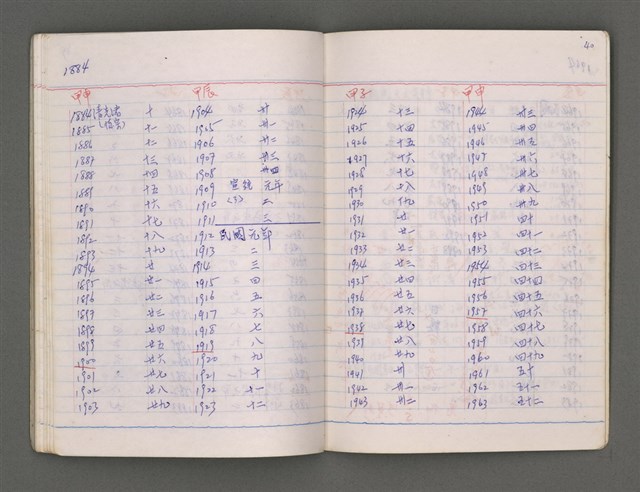 1884
甲申 甲辰
1884 十 1904 卅
1885 十一 1905 卅一
1886 十二 1906 卅二
1887 十三 1907 卅三
1888 十四 1908 卅四
1889 十五 1909 宣統 元年
1890 十六 1910 二
1891 十七 1911 三
1892 十八 1912 民國元年
1893 十九 1913 二
1894 廿 1914 三
1895 廿一 1915 四
1896 廿二 1916 五
1897 廿三 1917 六
1898 廿四 1918 七
1899 廿五 1919 八
1900 廿六 1920 九
1901 廿七 1921 十
1902 廿八 1922 十一
1903 廿九 1923 十二
40
甲子 甲申
1924 十三 1944 卅三
1925 十四 1945 卅四
1926 十五 1946 卅五
1927 十六 1947 卅六
1928 十七 1948 卅七
1929 十八 1949 卅八
1930 十九 1950 卅九
1931 廿 1951 四十
1932 廿一 1952 四十一
1933 廿二 1953 四十二
1934 廿三 1954 四十三
1935 廿四 1955 四十四
1936 廿五 1956 四十五
1937 廿六 1957 四十六
1938 廿七 1958 四十七
1939 廿八 1959 四十八
1940 廿九 1960 四十九
1941 卅 1961 五十
1942 卅一 1962 五十一
1943 卅二 1963 五十二